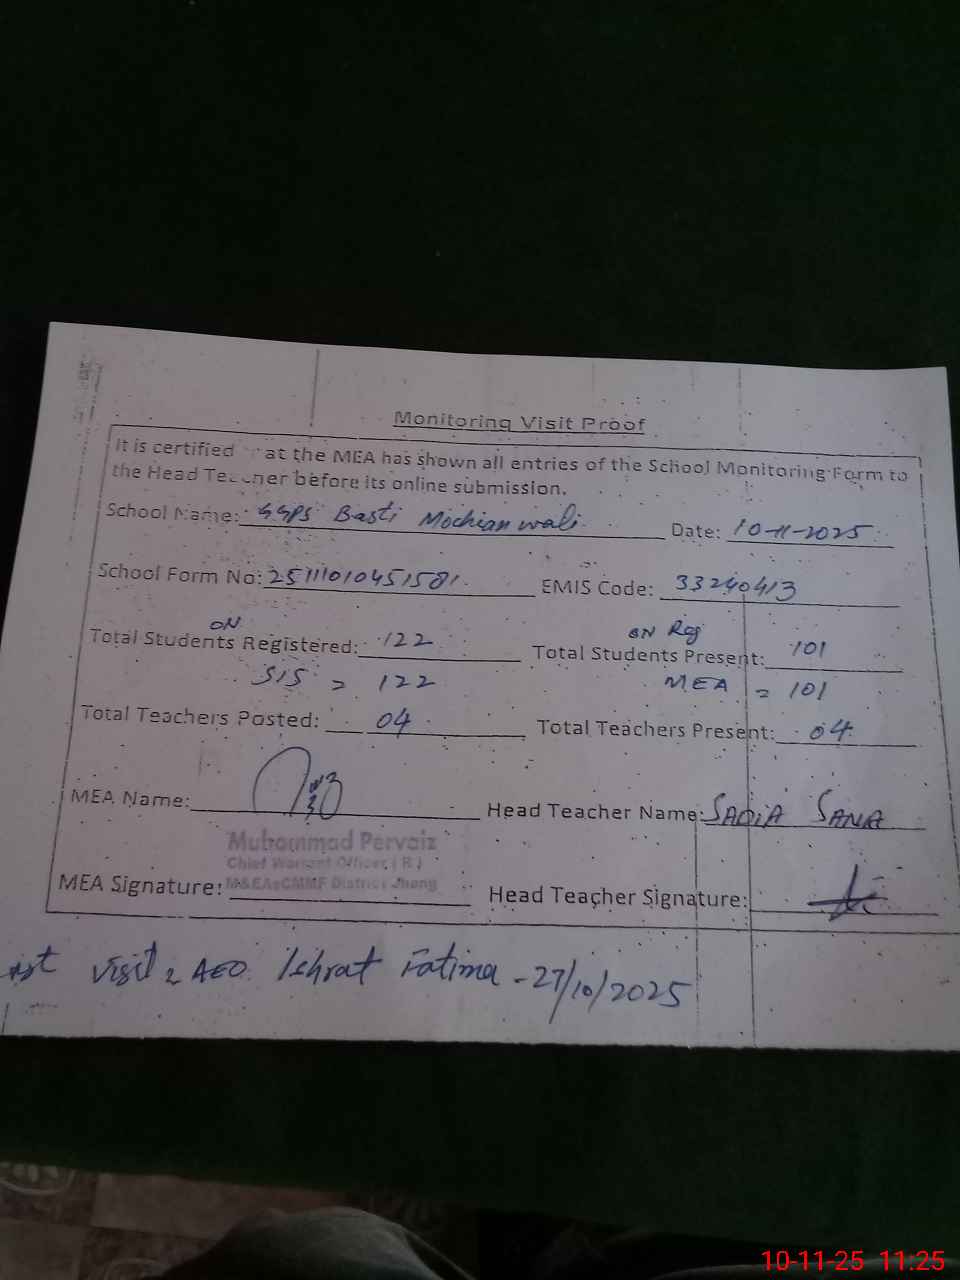 Monitoring Visit Proof
It is certified at the MEA has shown all entries of the School Monitoring Form to
the Head Teacher before its online submission.
School Name: GGPS Basti Mochian wali Date: 10-11-2025
School Form No: 25111010451581 EMIS Code: 33240413
ON ON Reg
Total Students Registered: 122 Total Students Present: 101
SIS = 122 MEA = 101
Total Teachers Posted: 04 Total Teachers Present: 04
MEA Name: Head Teacher Name: SADIA SANA
Muhammad Pervaiz
Chief Warrant Officer (R)
MEA Signature: M&EAs CMMF District Jhang Head Teacher Signature:
visit AEO Ishrat Fatima - 27/10/2025
10-11-25 11:25